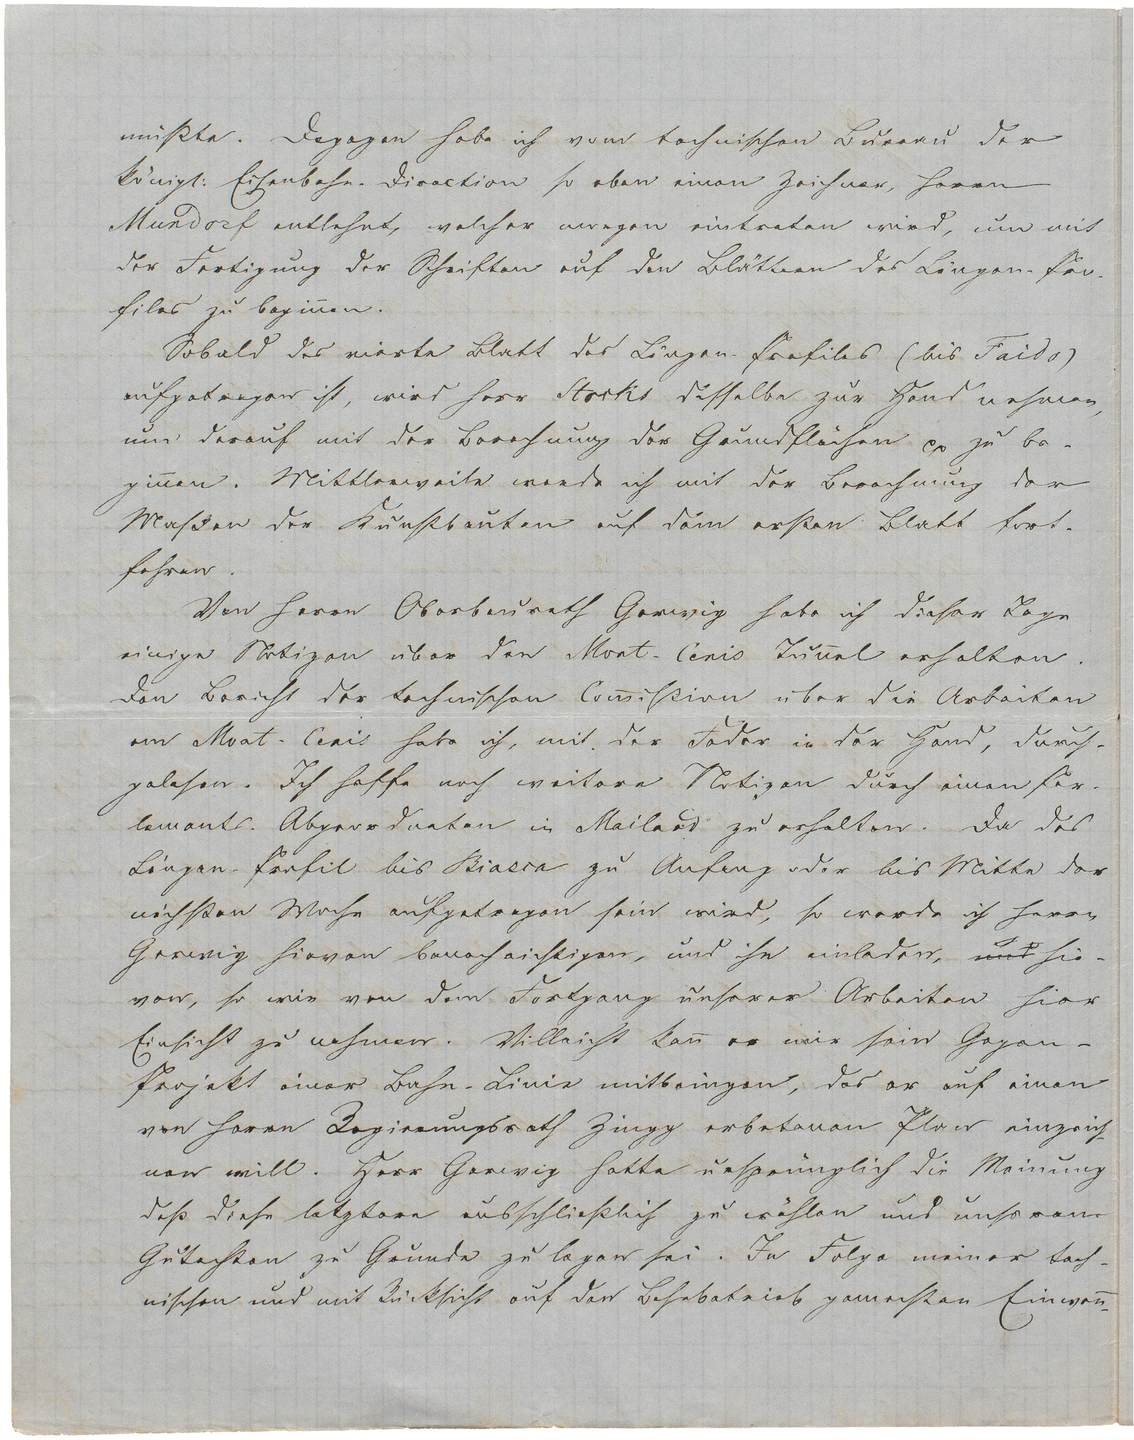 müßte. Dagegen habe ich vom technischen Bureau der
königl: Eisenbahn-Direction so eben einen Zeichner, Herrn
Mundorf entlehnt, welcher morgen eintreten wird, um mit
der Fertigung der Schriften auf den Blättern des Längen-Pro-
files zu begin̅en.
Sobald das vierte Blatt des Längen-Profiles (bis Faido)
aufgetragen ist, wird Herr Storks dasselbe zur Hand nehmen,
um darauf mit der Berechnung der Grundflächen zu be-
gin̅en. Mittlerweile werde ich mit der Berechnung der
Massen der Kunstbauten auf dem ersten Blatt fort-
fahren.
Von Herrn Oberbaurath Gerwig habe ich dieser Tage
einige Notizen über den Mont-Cenis Tun̅el erhalten.
Den Bericht der technischen Com̅ission über die Arbeiten
am Mont-Cenis habe ich, mit der Feder in der Hand, durch-
gelesen. Ich hoffe noch weitere Notizen durch einen Par-
laments-Abgeordneten in Mailand zu erhalten. Da das
Längen-Profil bis Biasca zu Anfang oder bis Mitte der
nächsten Woche aufgetragen sein wird, so werde ich Herrn
Gerwig hievon benachrichtigen, und ihn einladen, und hie-
von, so wie von dem Fortgang unserer Arbeiten hier
Einsicht zu nehmen. Villeicht kan̅ er mir sein Gegen-
Projekt einer Bahn-Linie mitbringen, das er auf einen
von Herrn Regierungsrath Zingg erbetenen Plan einzeich-
nen will. Herr Gerwig hatte ursprünglich die Meinung
daß diese letztere ausschließlich zu wählen und unserem
Gutachten zu Grunde zu legen sei. In Folge meiner tech-
nischen und mit Rücksicht auf den Bahnbetrieb gemachten Einwen̅-